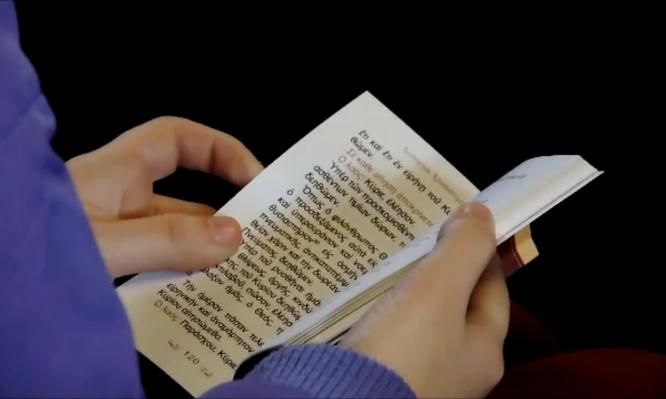 Λειτουργία Χρυσοστόμου
ἔτι καὶ ἔτι ἐν εἰρήνῃ τοῦ Κυ
θῶμεν.
Σὲ κάθε αἴτηση ἀποκρίνετ
Ὁ λαός: Κύριε, ἐλέησον.
Ὑπὲρ τῶν προσκομισθέν
ασθέντων τιμίων δώρων, τ
δεηθῶμεν.
Ὅπως ὁ φιλάνθρωπος Θ
ὁ προσδεξάμενος αὐτὰ εἰς
καὶ ὑπερουράνιον καὶ νοε
θυσιαστήριον εἰς ὀσμὴν
πνευματικῆς, ἀντικαταπέμψ
θείαν χάριν καὶ τὴν δωρεὰν
Πνεύματος, δεηθῶμεν.
Ὑπὲρ τοῦ ῥυσθῆναι ἡμᾶ
θλίψεως, ὀργῆς, κινδύ
τοῦ Κυρίου δεηθῶ
σῶσον, ἐλέησ
ἡμᾶς, ὁ Θεός, τ
Τὴν ἡμέραν πᾶσαν τελε
εἰρηνικὴν καὶ ἀναμάρτητον
Κυρίου αἰτησώμεθα.
Ὁ λαός: Παράσχου, Κύριε.
120